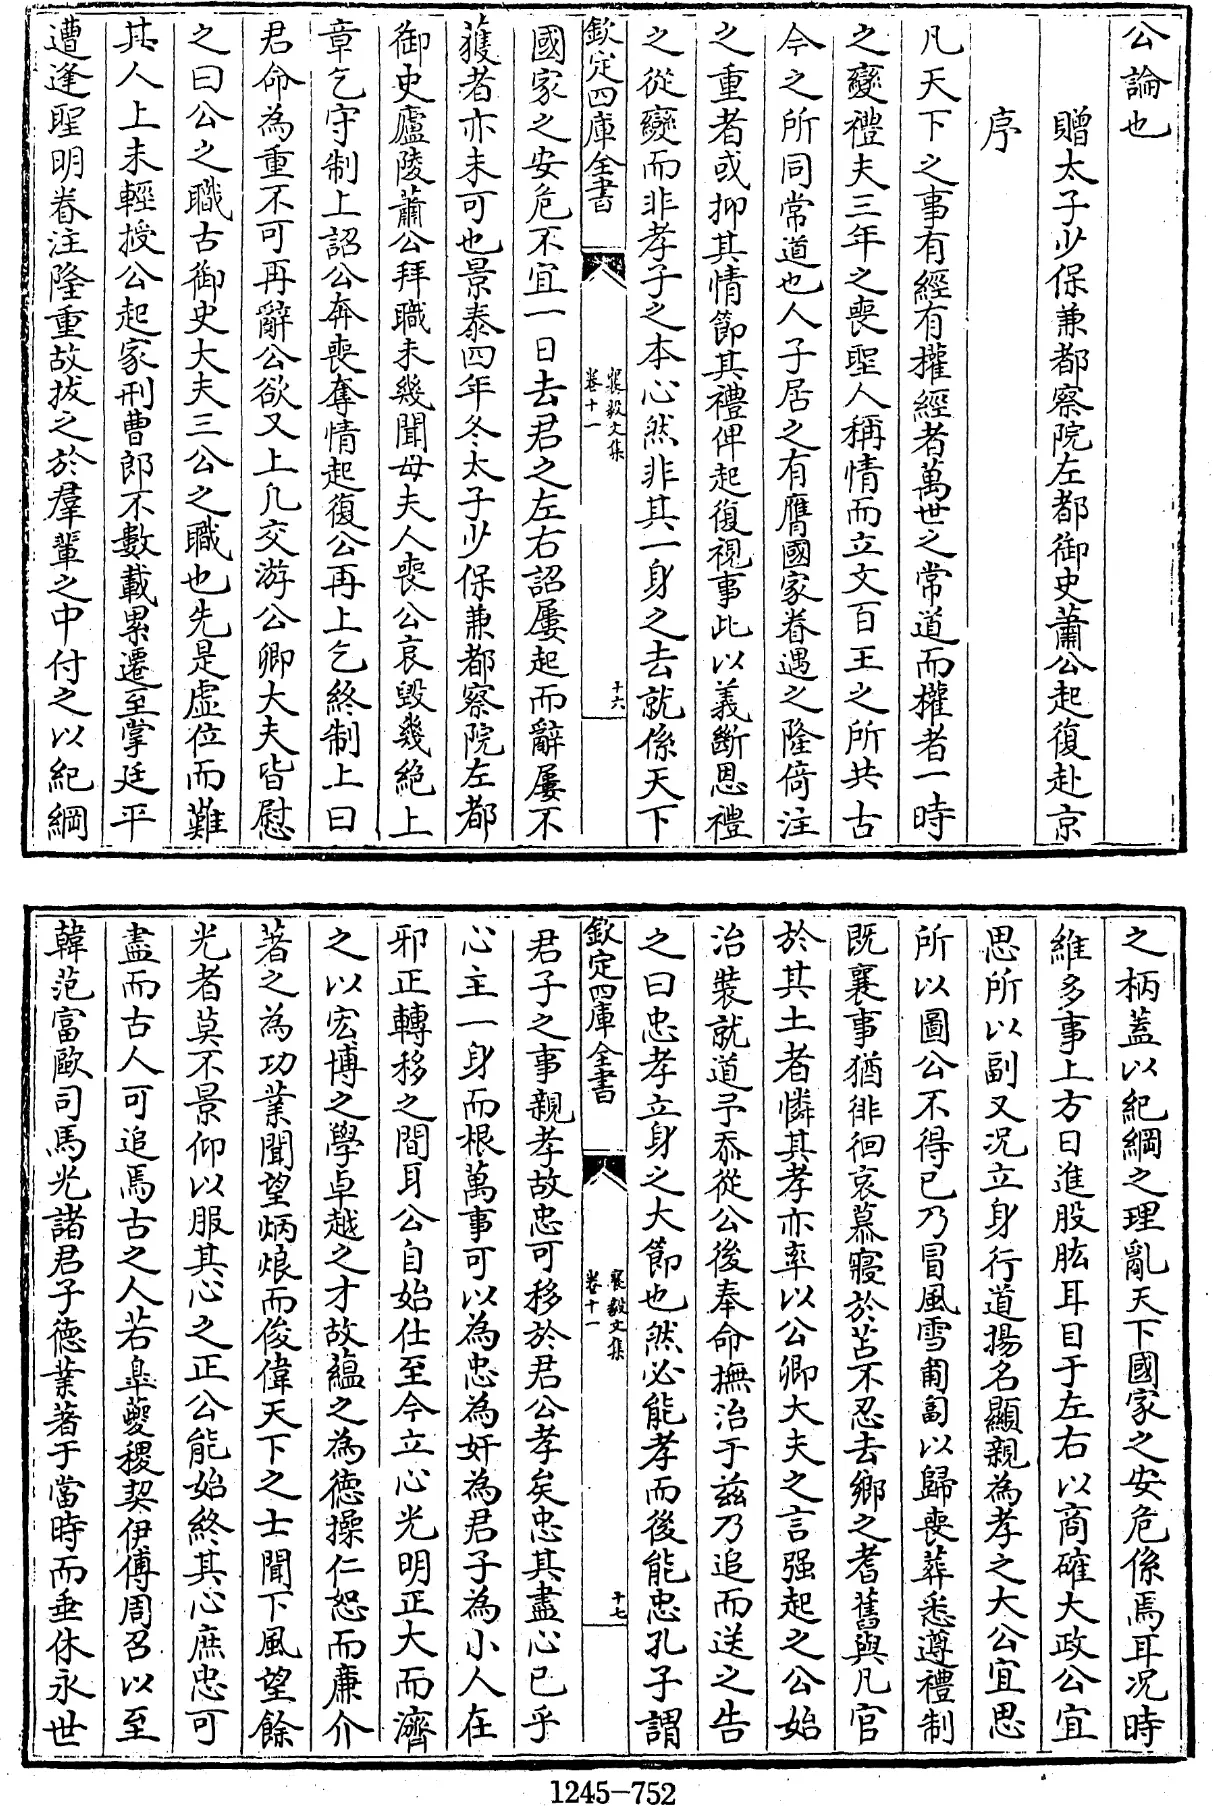 公論也
贈太子少保兼都察院左都御史蕭公起復赴京
序
凡天下之事有經有權經者萬世之常道而權者一時
之變禮夫三年之喪聖人稱情而立文百王之所共古
今之所同常道也人子居之有膺國家眷遇之隆倚注
之重者或抑其情節其禮俾起復視事此以義斷恩禮
之從變而非孝子之本心然非其一身之去就係天下
欽定四庫全書
襄毅文集
卷十一
十六
國家之安危不宜一日去君之左右詔屢起而辭屢不
獲者亦未可也景泰四年冬太子少保兼都察院左都
御史廬陵蕭公拜職未幾聞母夫人喪公哀毀幾絶上
章乞守制上詔公奔喪奪情起復公再上乞終制上曰
君命為重不可再辭公欲又上凡交游公卿大夫皆慰
之曰公之職古御史大夫三公之職也先是虛位而難
其人上未輕授公起家刑曹郎不數載累遷至掌廷平
遭逢聖明眷注隆重故拔之於羣輩之中付之以紀綱
之柄蓋以紀綱之理亂天下國家之安危係焉耳況時
維多事上方日進股肱耳目于左右以商確大政公宜
思所以副又况立身行道揚名顯親為孝之大公宜思
所以圖公不得已乃冒風雪匍匐以歸喪葬悉遵禮制
既襄事猶徘徊哀慕寢於苫不忍去鄉之耆舊與凡官
於其土者憐其孝亦率以公卿大夫之言强起之公始
治裝就道予忝從公後奉命撫治于兹乃追而送之告
之曰忠孝立身之大節也然必能孝而後能忠孔子謂
欽定四庫全書
襄毅文集
卷十一
十七
君子之事親孝故忠可移於君公孝矣忠其盡心已乎
心主一身而根萬事可以為忠為奸為君子為小人在
邪正轉移之間耳公自始仕至今立心光明正大而濟
之以宏博之學卓越之才故蘊之為德操仁恕而廉介
著之為功業聞望炳烺而俊偉天下之士聞下風望餘
光者莫不景仰以服其心之正公能始終其心庶忠可
盡而古人可追焉古之人若臯夔稷契伊傅周召以至
韓范富歐司馬光諸君子德業著于當時而垂休永世
1245-752